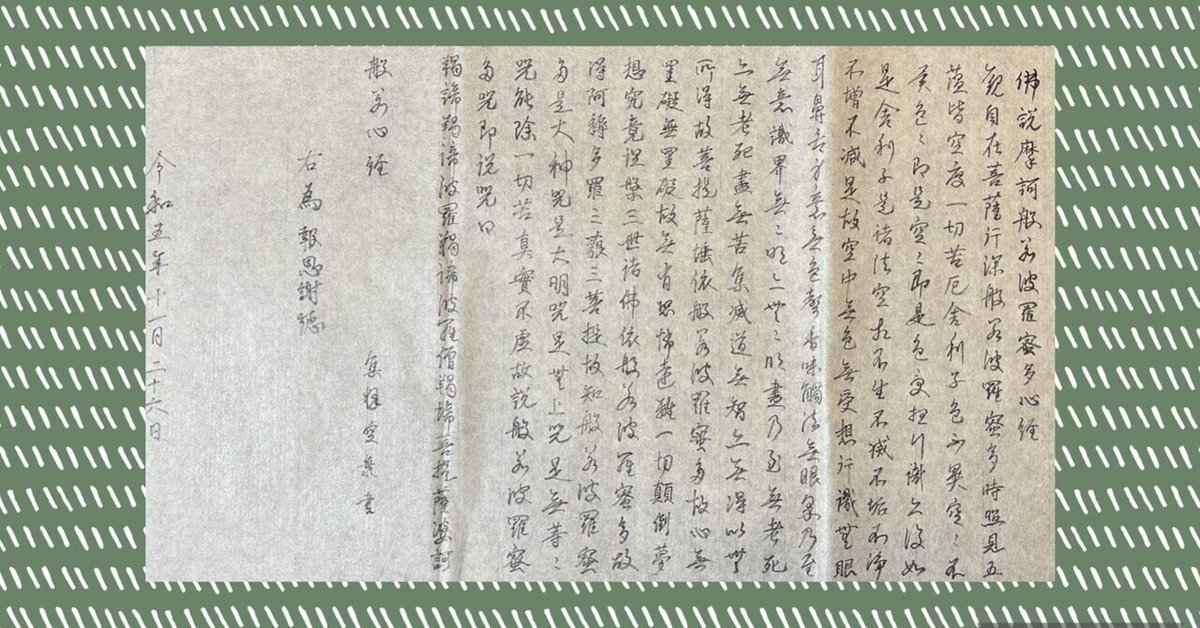 佛説摩訶般若波羅蜜多心経
観自在菩薩行深般若波羅蜜多時照見五
蘊皆空度一切苦厄舎利子色不異空〻不
異色〻即是空〻即是色受想行識亦復如
是舎利子是諸法空相不生不滅不垢不浄
不増不減是故空中無色無受想行識無眼
耳鼻舌身意無色聲香味觸法無眼界乃至
無意識界無〻明亦無〻明盡乃至無老死
亦無老死盡無苦集滅道無智亦無得以無
所得故菩提薩埵依般若波羅蜜多故心無
罣礙無罣礙故無有恐怖遠離一切顛倒夢
想究竟涅槃三世諸佛依般若波羅蜜多故
得阿耨多羅三藐三菩提故知般若波羅蜜
多是大神咒是大明咒是無上咒是無等〻
咒能除一切苦真實不虚故説般若波羅蜜
多咒即説咒曰
羯諦羯諦波羅羯諦波羅僧羯諦菩提薩婆訶
般若心経
右為報恩謝徳
空泉書
令和五年十一月二十六日